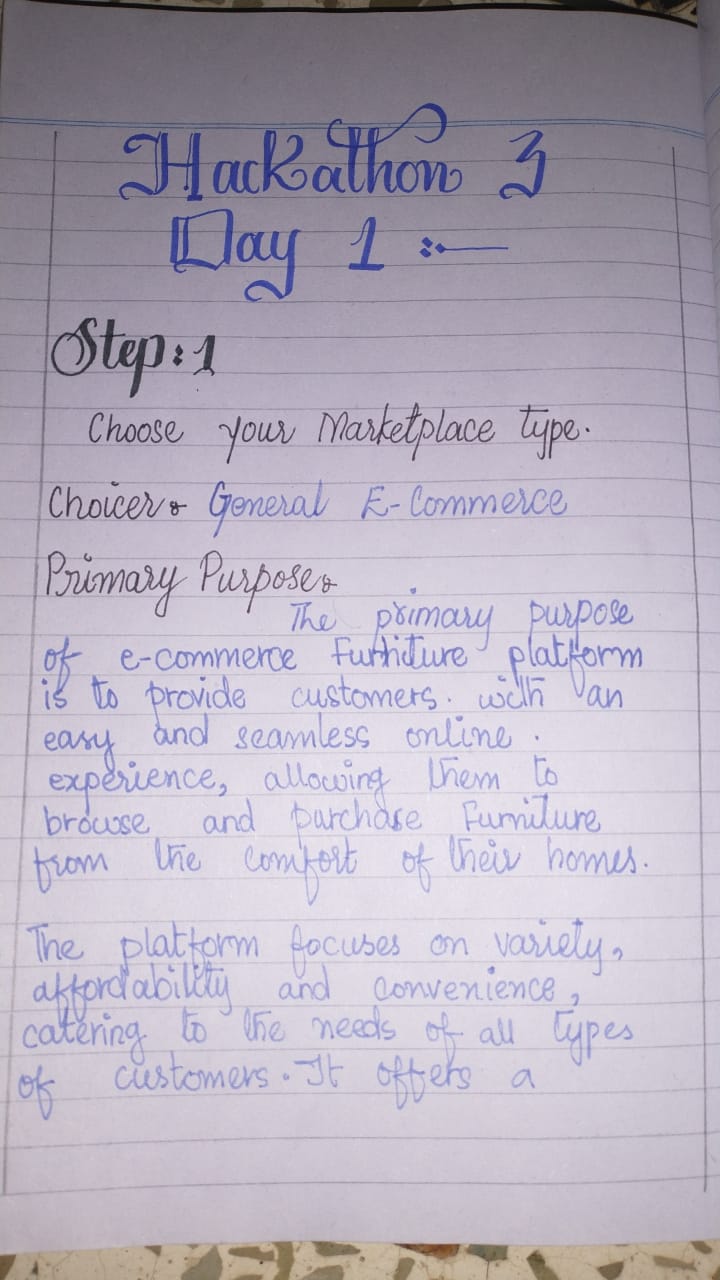 Hackathon 3
Day 1 :-
Step: 1
Choose your Marketplace type.
Choicer: General E-Commerce
Primary Purpose:
The primary purpose
of e-commerce furniture platform
is to provide customers. with an
easy and seamless online.
experience, allowing them to
browse and purchase Furniture
from the comfort of their homes.
The platform focuses on variety,
affordability and convenience,
catering to the needs of all types
of customers. It offers a